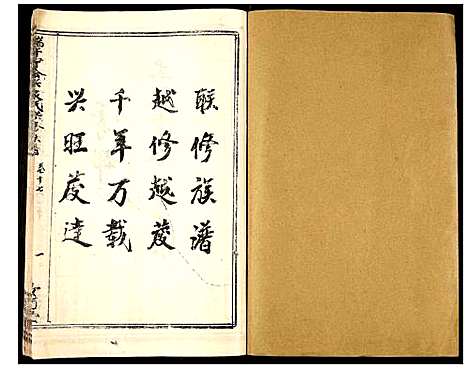 联修族谱
越修越发
千年万载
兴旺发达
卷十七
一